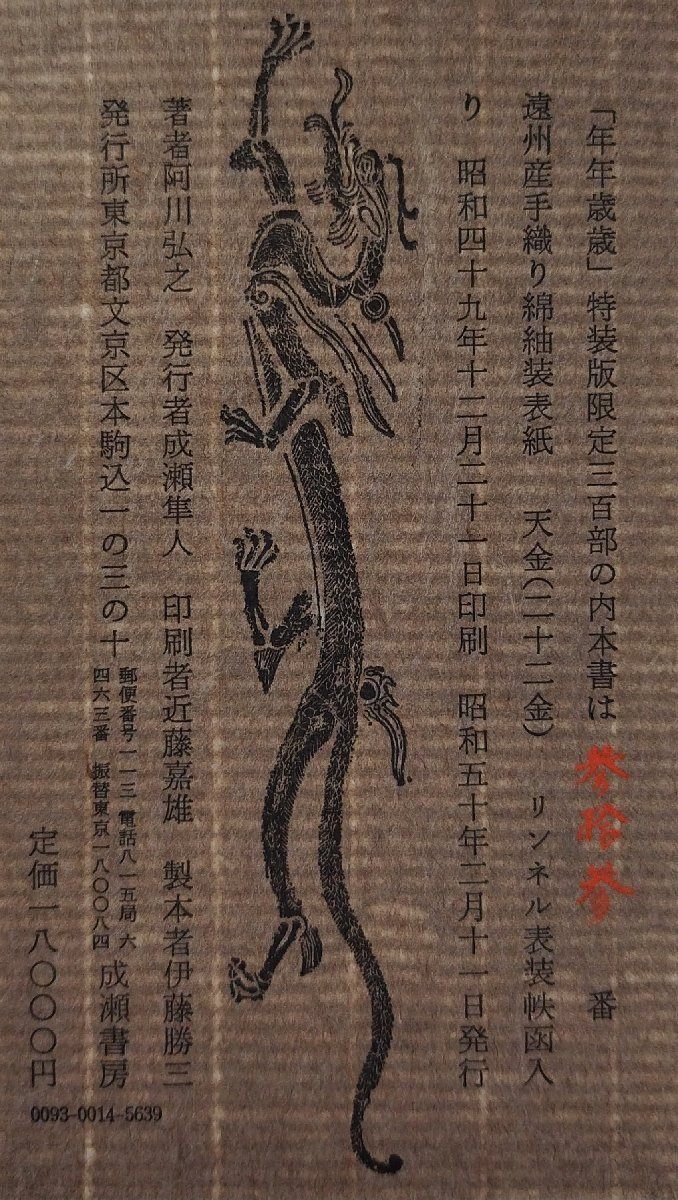 「年年歳歳」特装版限定三百部の内本書は 参拾参 番
遠州産手織り綿紬装表紙 天金(二十二金) リンネル表装帙函入
り 昭和四十九年十二月二十一日印刷 昭和五十年二月十一日発行
著者阿川弘之 発行者成瀬隼人 印刷者近藤嘉雄 製本者伊藤勝三
発行所東京都文京区本駒込一の三の十 郵便番号一一三 電話八一五局六
四六三番 振替東京一八〇〇八四 成瀬書房
定価一八〇〇〇円
0093-0014-5639